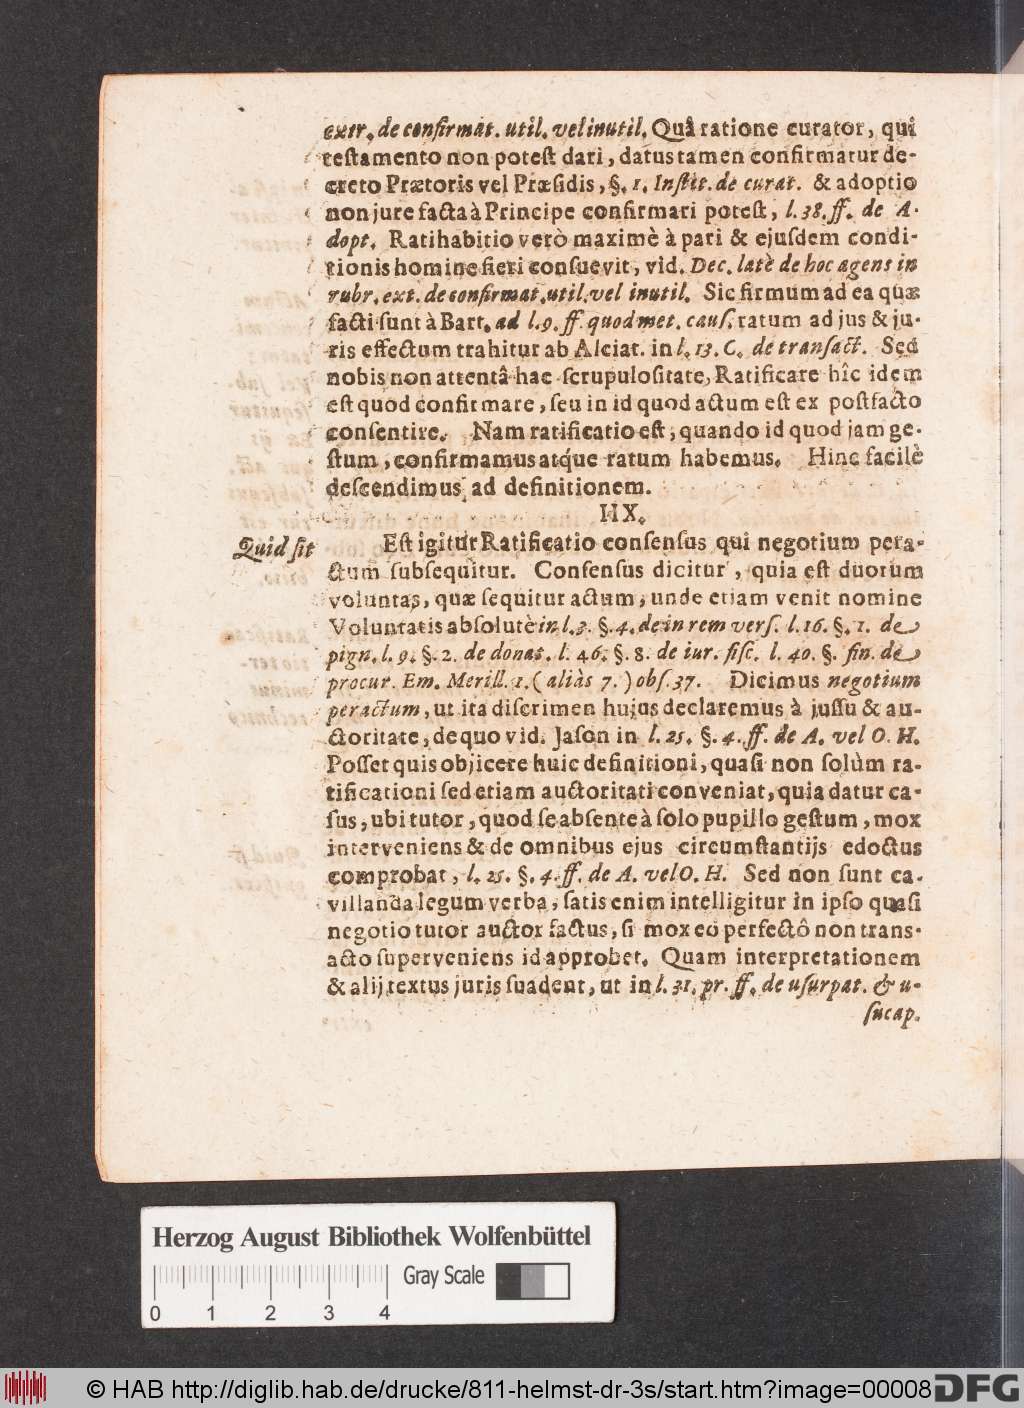 extr. de confirmat. util. vel inutil. Quâ ratione curator, qui
testamento non potest dari, datus tamen confirmatur de-
creto Prætoris vel Præsidis, §. 1. Instit. de curat. & adoptio
non jure facta à Principe confirmari potest, l. 38. ff. de A-
dopt. Ratihabitio verò maximè à pari & ejusdem condi-
tionis homine fieri consuevit, vid. Dec. latè de hoc agens in
rubr. ext. de confirmat. util. vel inutil. Sic firmum ad ea quæ
facti sunt à Bart. ad l. 9. ff. quod met. caus. ratum ad jus & ju-
ris effectum trahitur ab Alciat. in l. 13. C. de transact. Sed
nobis non attentâ hac scrupulositate, Ratificare hîc idem
est quod confirmare, seu in id quod actum est ex postfacto
consentire. Nam ratificatio est, quando id quod jam ge-
stum, confirmamus atq́ue ratum habemus. Hinc facilè
descendimus ad definitionem.
IIX.
Quid sit
Est igitur Ratificatio consensus qui negotium pera-
ctum subsequitur. Consensus dicitur, quia est duorum
voluntas, quæ sequitur actum, unde etiam venit nomine
Voluntatis absolutè in l. 3. §. 4. de in rem vers. l. 16. §. 1. de
pign. l. 9. §. 2. de donat. l. 46. §. 8. de iur. fisc. l. 40. §. fin. de
procur. Em. Merill. 1. (aliàs 7.) obs. 37. Dicimus negotium
peractum, ut ita discrimen hujus declaremus à jussu & au-
ctoritate, de quo vid. Jason in l. 25. §. 4. ff. de A. vel O. H.
Posset quis objicere huic definitioni, quasi non solùm ra-
tificationi sed etiam auctoritati conveniat, quia datur ca-
sus, ubi tutor, quod se absente à solo pupillo gestum, mox
interveniens & de omnibus ejus circumstantijs edoctus
comprobat, l. 25. §. 4. ff. de A. vel O. H. Sed non sunt ca-
villanda legum verba, satis enim intelligitur in ipso quasi
negotio tutor auctor factus, si mox eo perfectô non trans-
acto superveniens id approbet. Quam interpretationem
& alij textus juris suadent, ut in l. 31. pr. ff. de usurpat. & u-
sucap.
Herzog August Bibliothek Wolfenbüttel
Gray Scale
0 1 2 3 4
© HAB http://diglib.hab.de/drucke/811-helmst-dr-3s/start.htm?image=00008
DFG